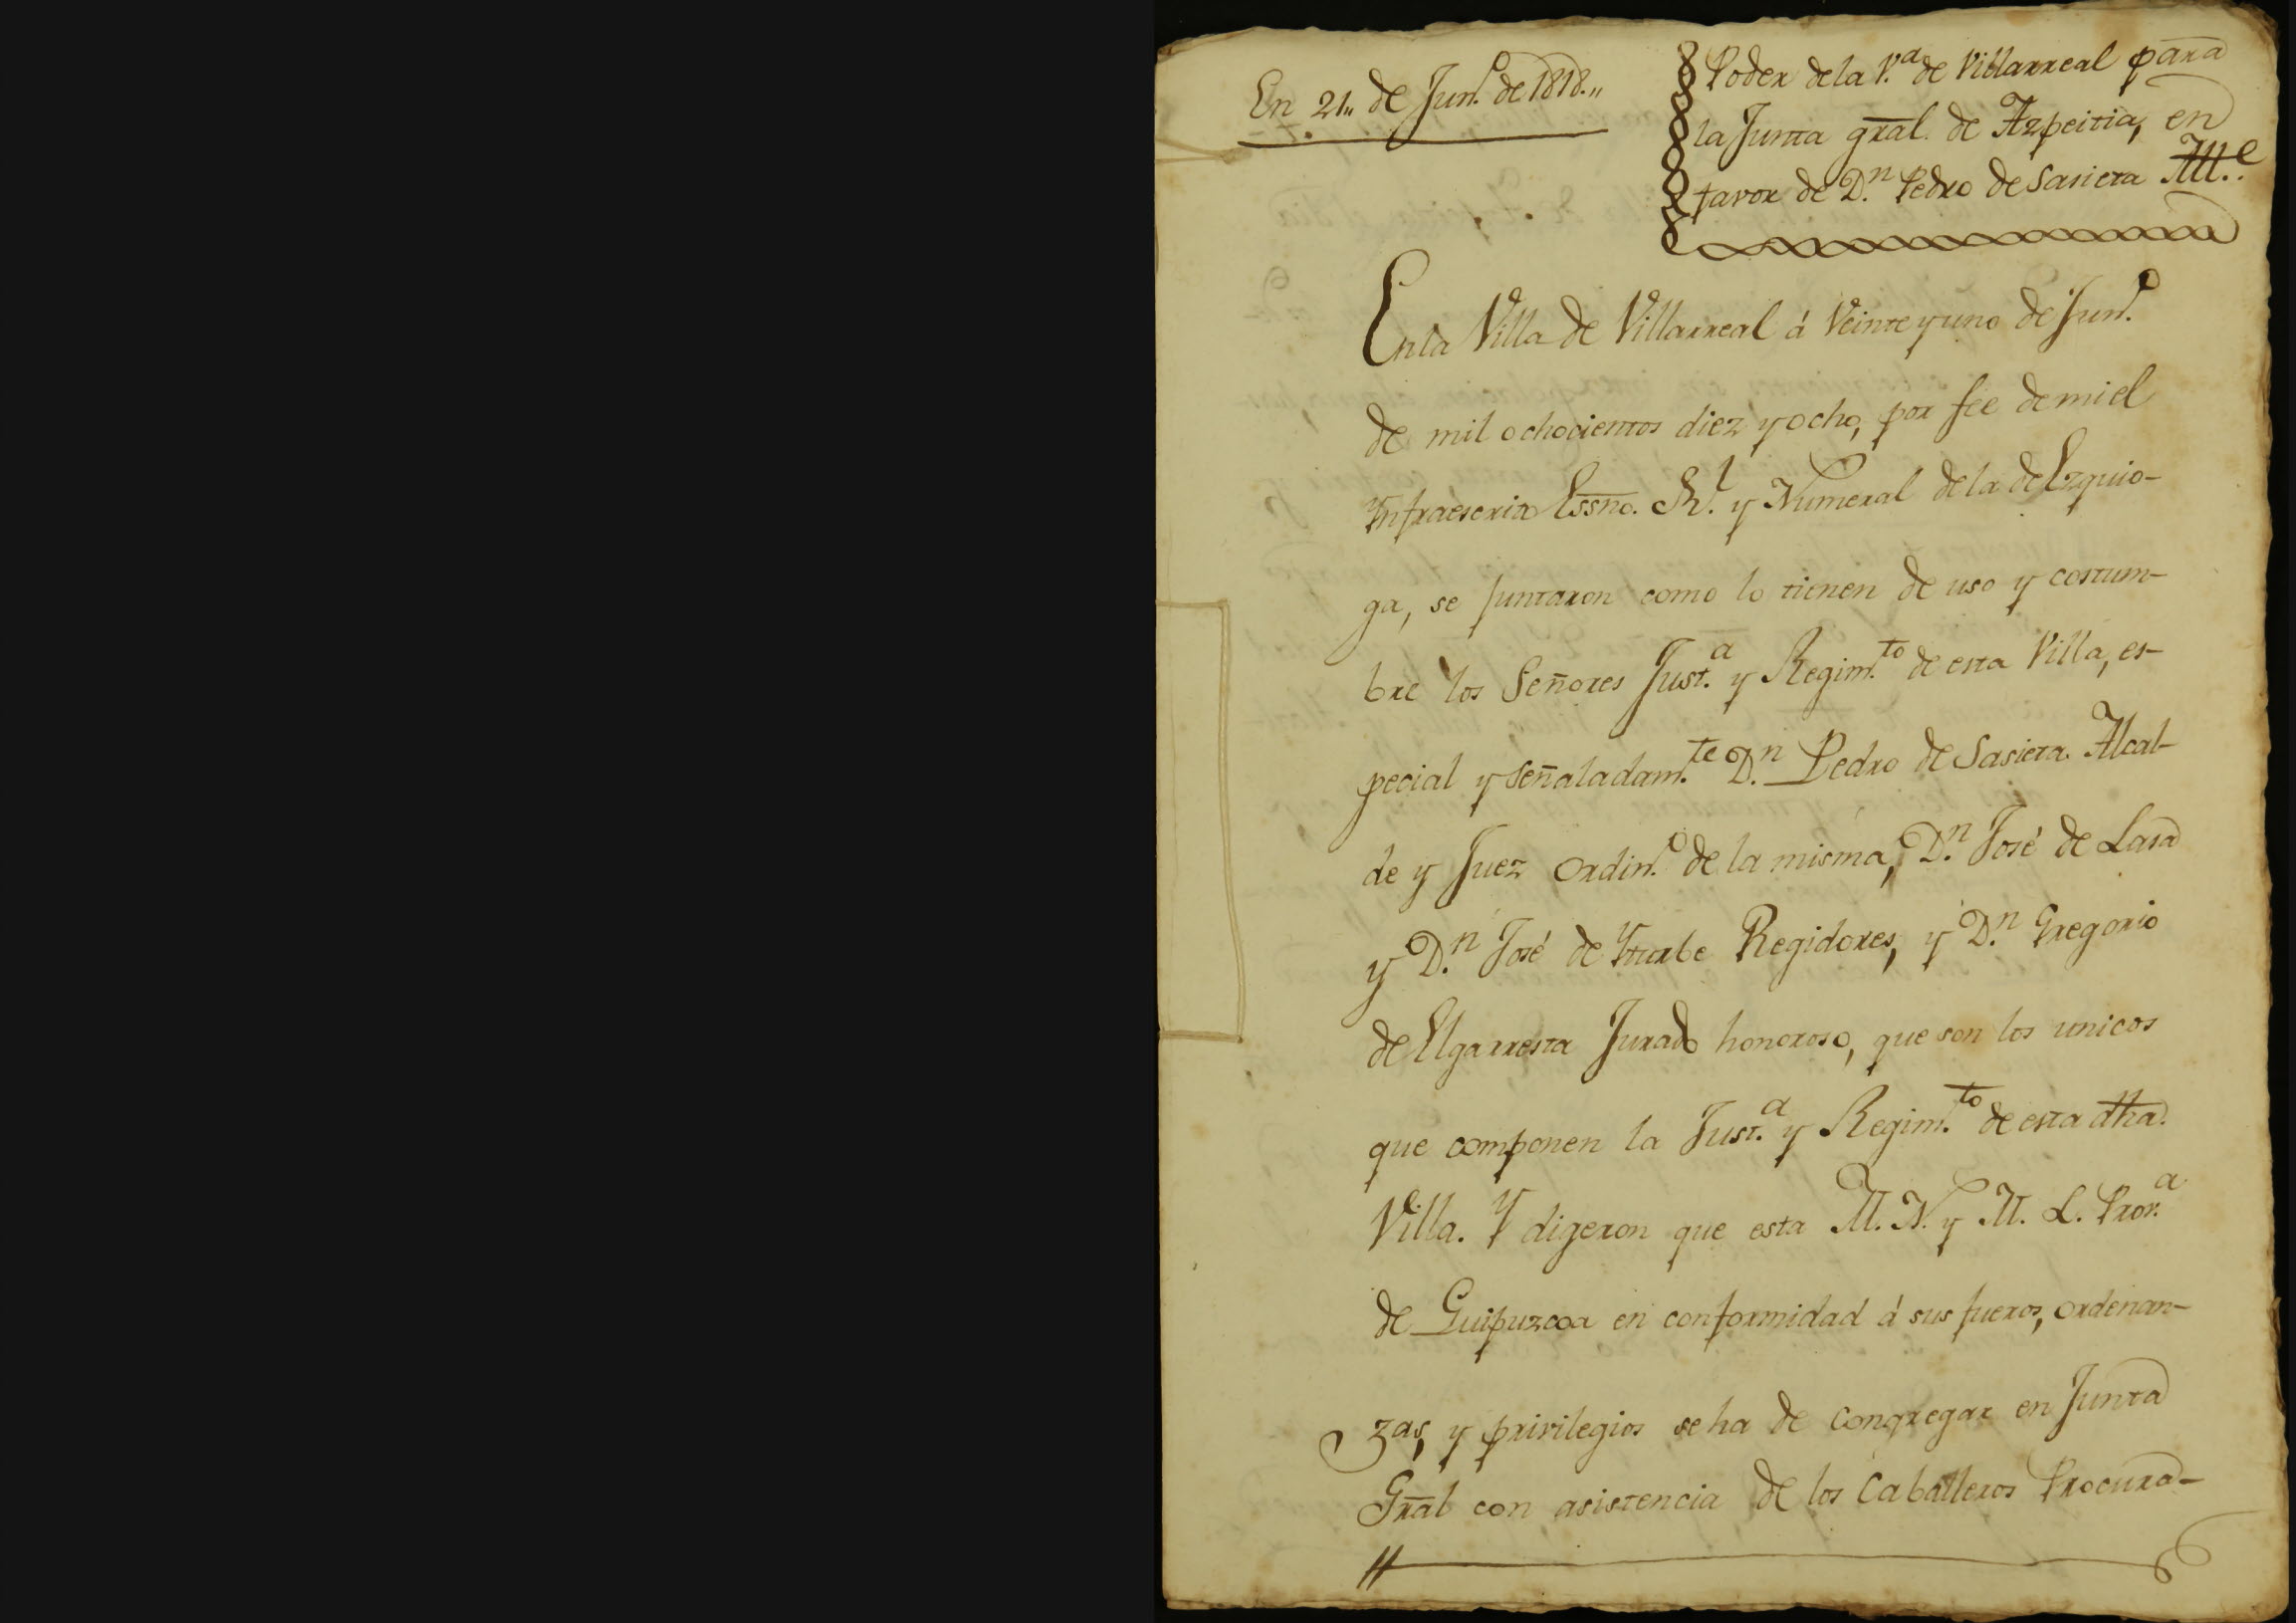 En 21,, de Jun.º de 1818.,,
Poder de la V.ª de Villarreal para
la Junta gral. de Azpeitia, en
favor de D.n Pedro de Sasieta All.e
En la Villa de Villarreal á Veinte y uno de Jun.º
de mil ochocientos diez y ocho, por fee de mi el
Ynfraescrito Essno. Rl. y Numeral de la de Ezquio-
ga, se juntaron como lo tienen de uso y costum-
bre los Señores Just.ª y Regim.to de esta Villa, es-
pecial y señaladam.te D.n Pedro de Sasieta Alcal-
de y Juez ordin.º de la misma, D.n José de Lasa
y D.n José de Yturbe Regidores, y D.n Gregorio
de Elgarresta Jurado honoroso, que son los unicos
que componen la Just.ª y Regim.to de esta dha.
Villa. Y digeron que esta M. N. y M. L. Prov.ª
de Guipuzcoa en conformidad á sus fueros, ordenan-
zas, y privilegios se ha de congregar en Junta
Gral con asistencia de los Caballeros Procura-